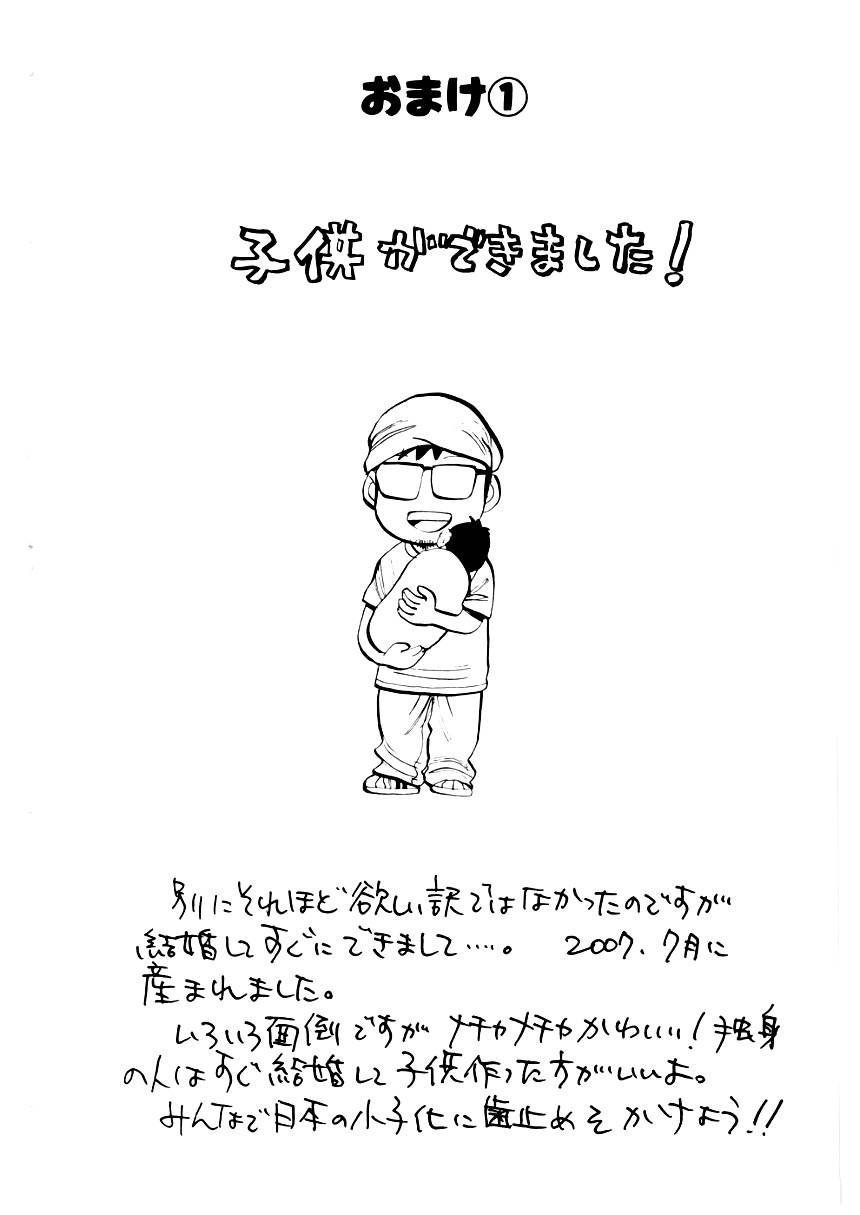 おまけ①
子供ができました!
別にそれほど欲しい訳ではなかったのですが
結婚してすぐにできまして…。 2007.7月に
産まれました。
いろいろ面倒ですがメチャメチャかわいい!独身
の人はすぐ結婚して子供作った方がいいよ。
みんなで日本の小子化に歯止めをかけよう!!